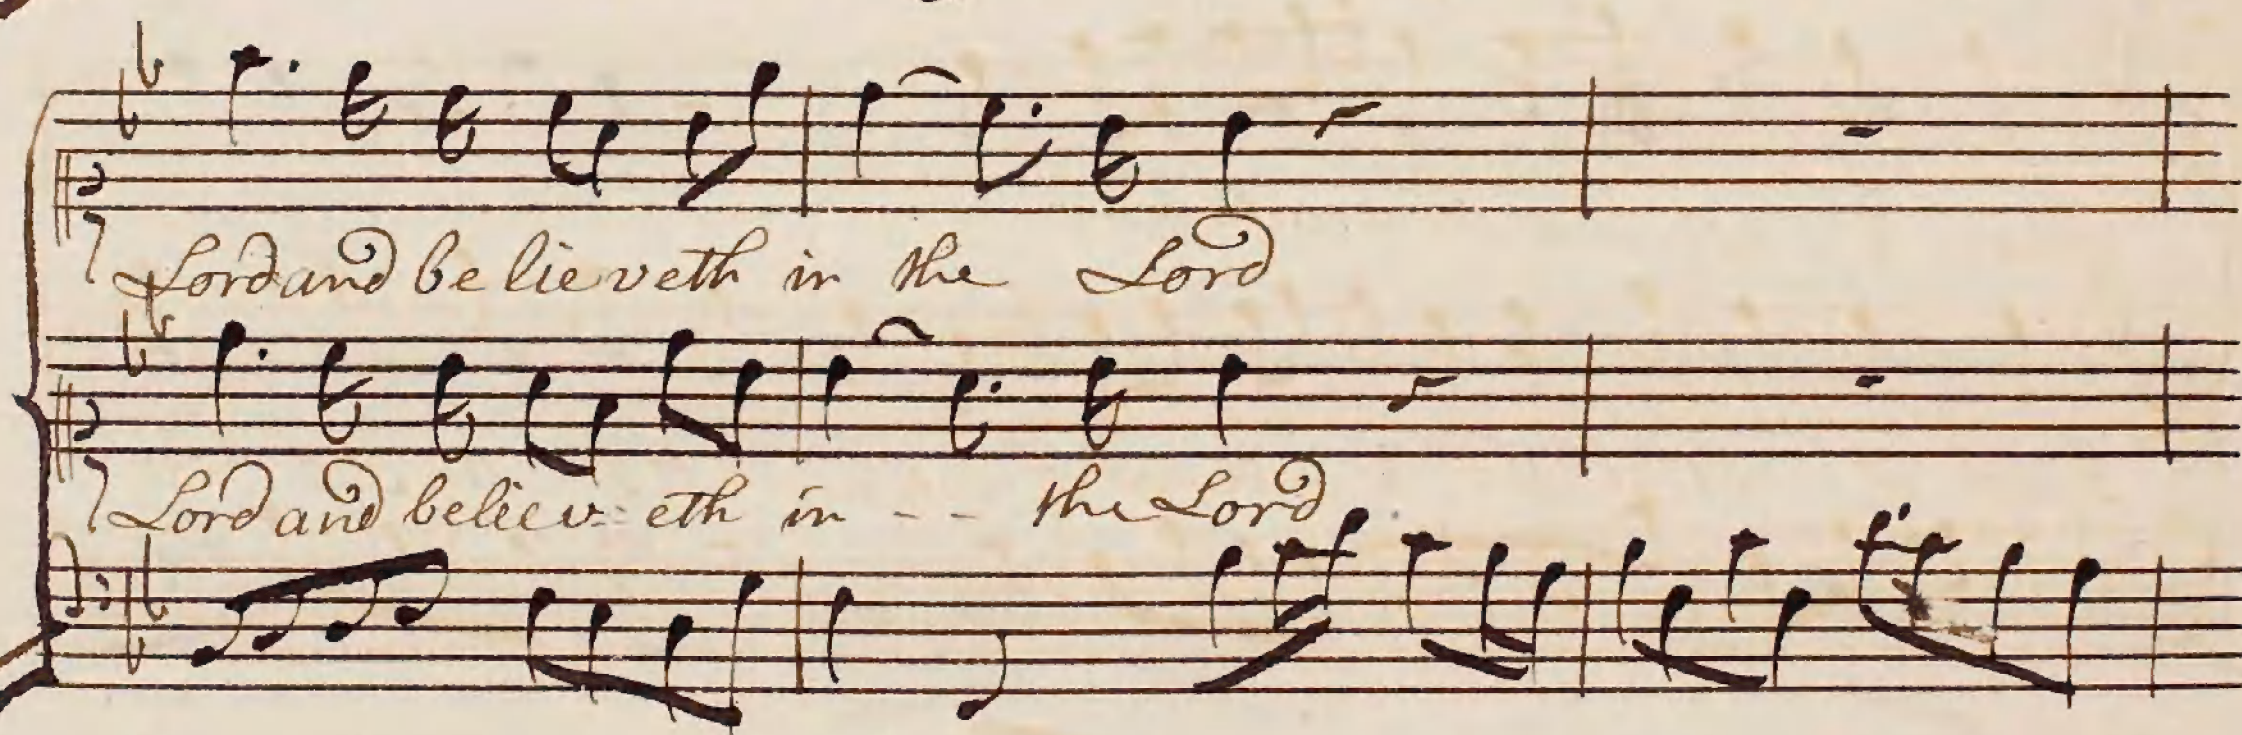 Lord and be lie veth in the Lord
Lord and believ= eth in - - the Lord